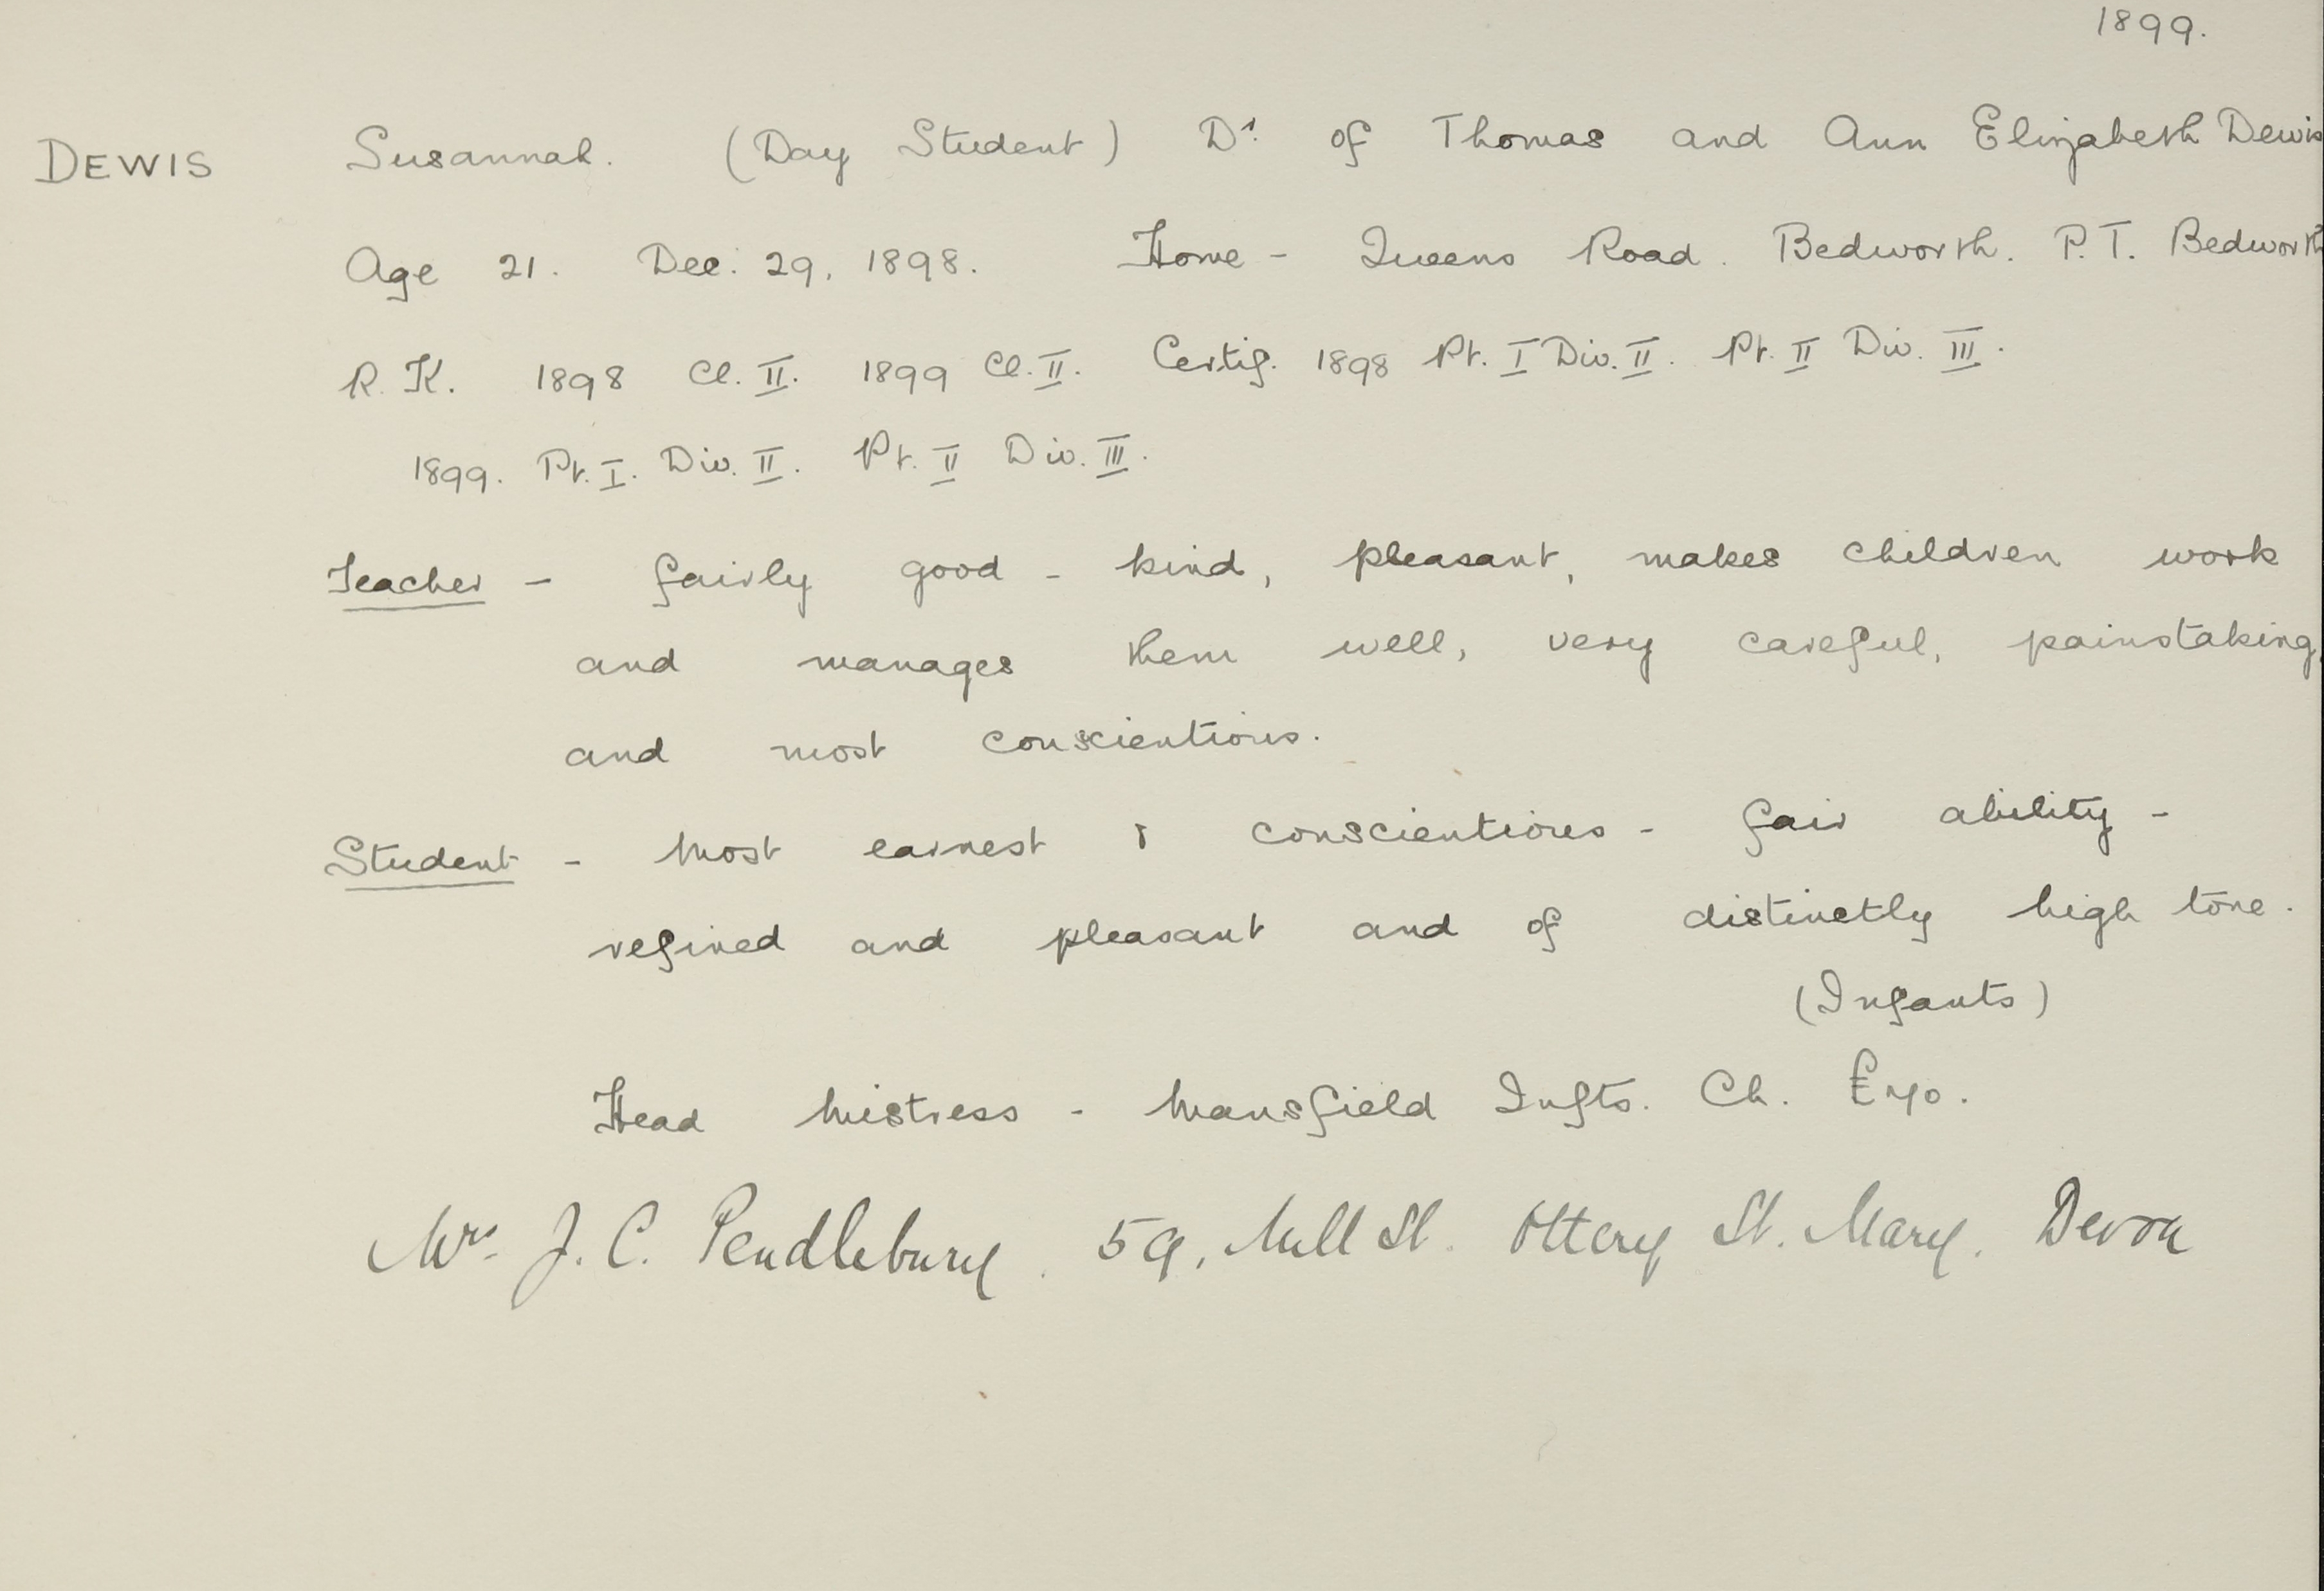 1899.
DEWIS Susannah. (Day Student) Dr. of Thomas and Ann Elizabeth Dewis
Age 21. Dec. 29, 1898. Home - Queens Road. Bedworth. P.T. Bedworth
R.K. 1898 Cl. II. 1899 Cl. II. Certif. 1898 Pt. I Div. II. Pt. II Div. III.
1899. Pt. I. Div. II. Pt. II Div. III.
Teacher - fairly good - kind, pleasant, makes children work
and manages them well, very careful, painstaking,
and most conscientious.
Student - Most earnest & conscientious - fair ability -
refined and pleasant and of distinctly high tone.
(Infants)
Head Mistress - Mansfield Infts. Ch. £70.
Mrs. J. C. Pendlebury. 59, Mill St. Ottery St. Mary. Devon